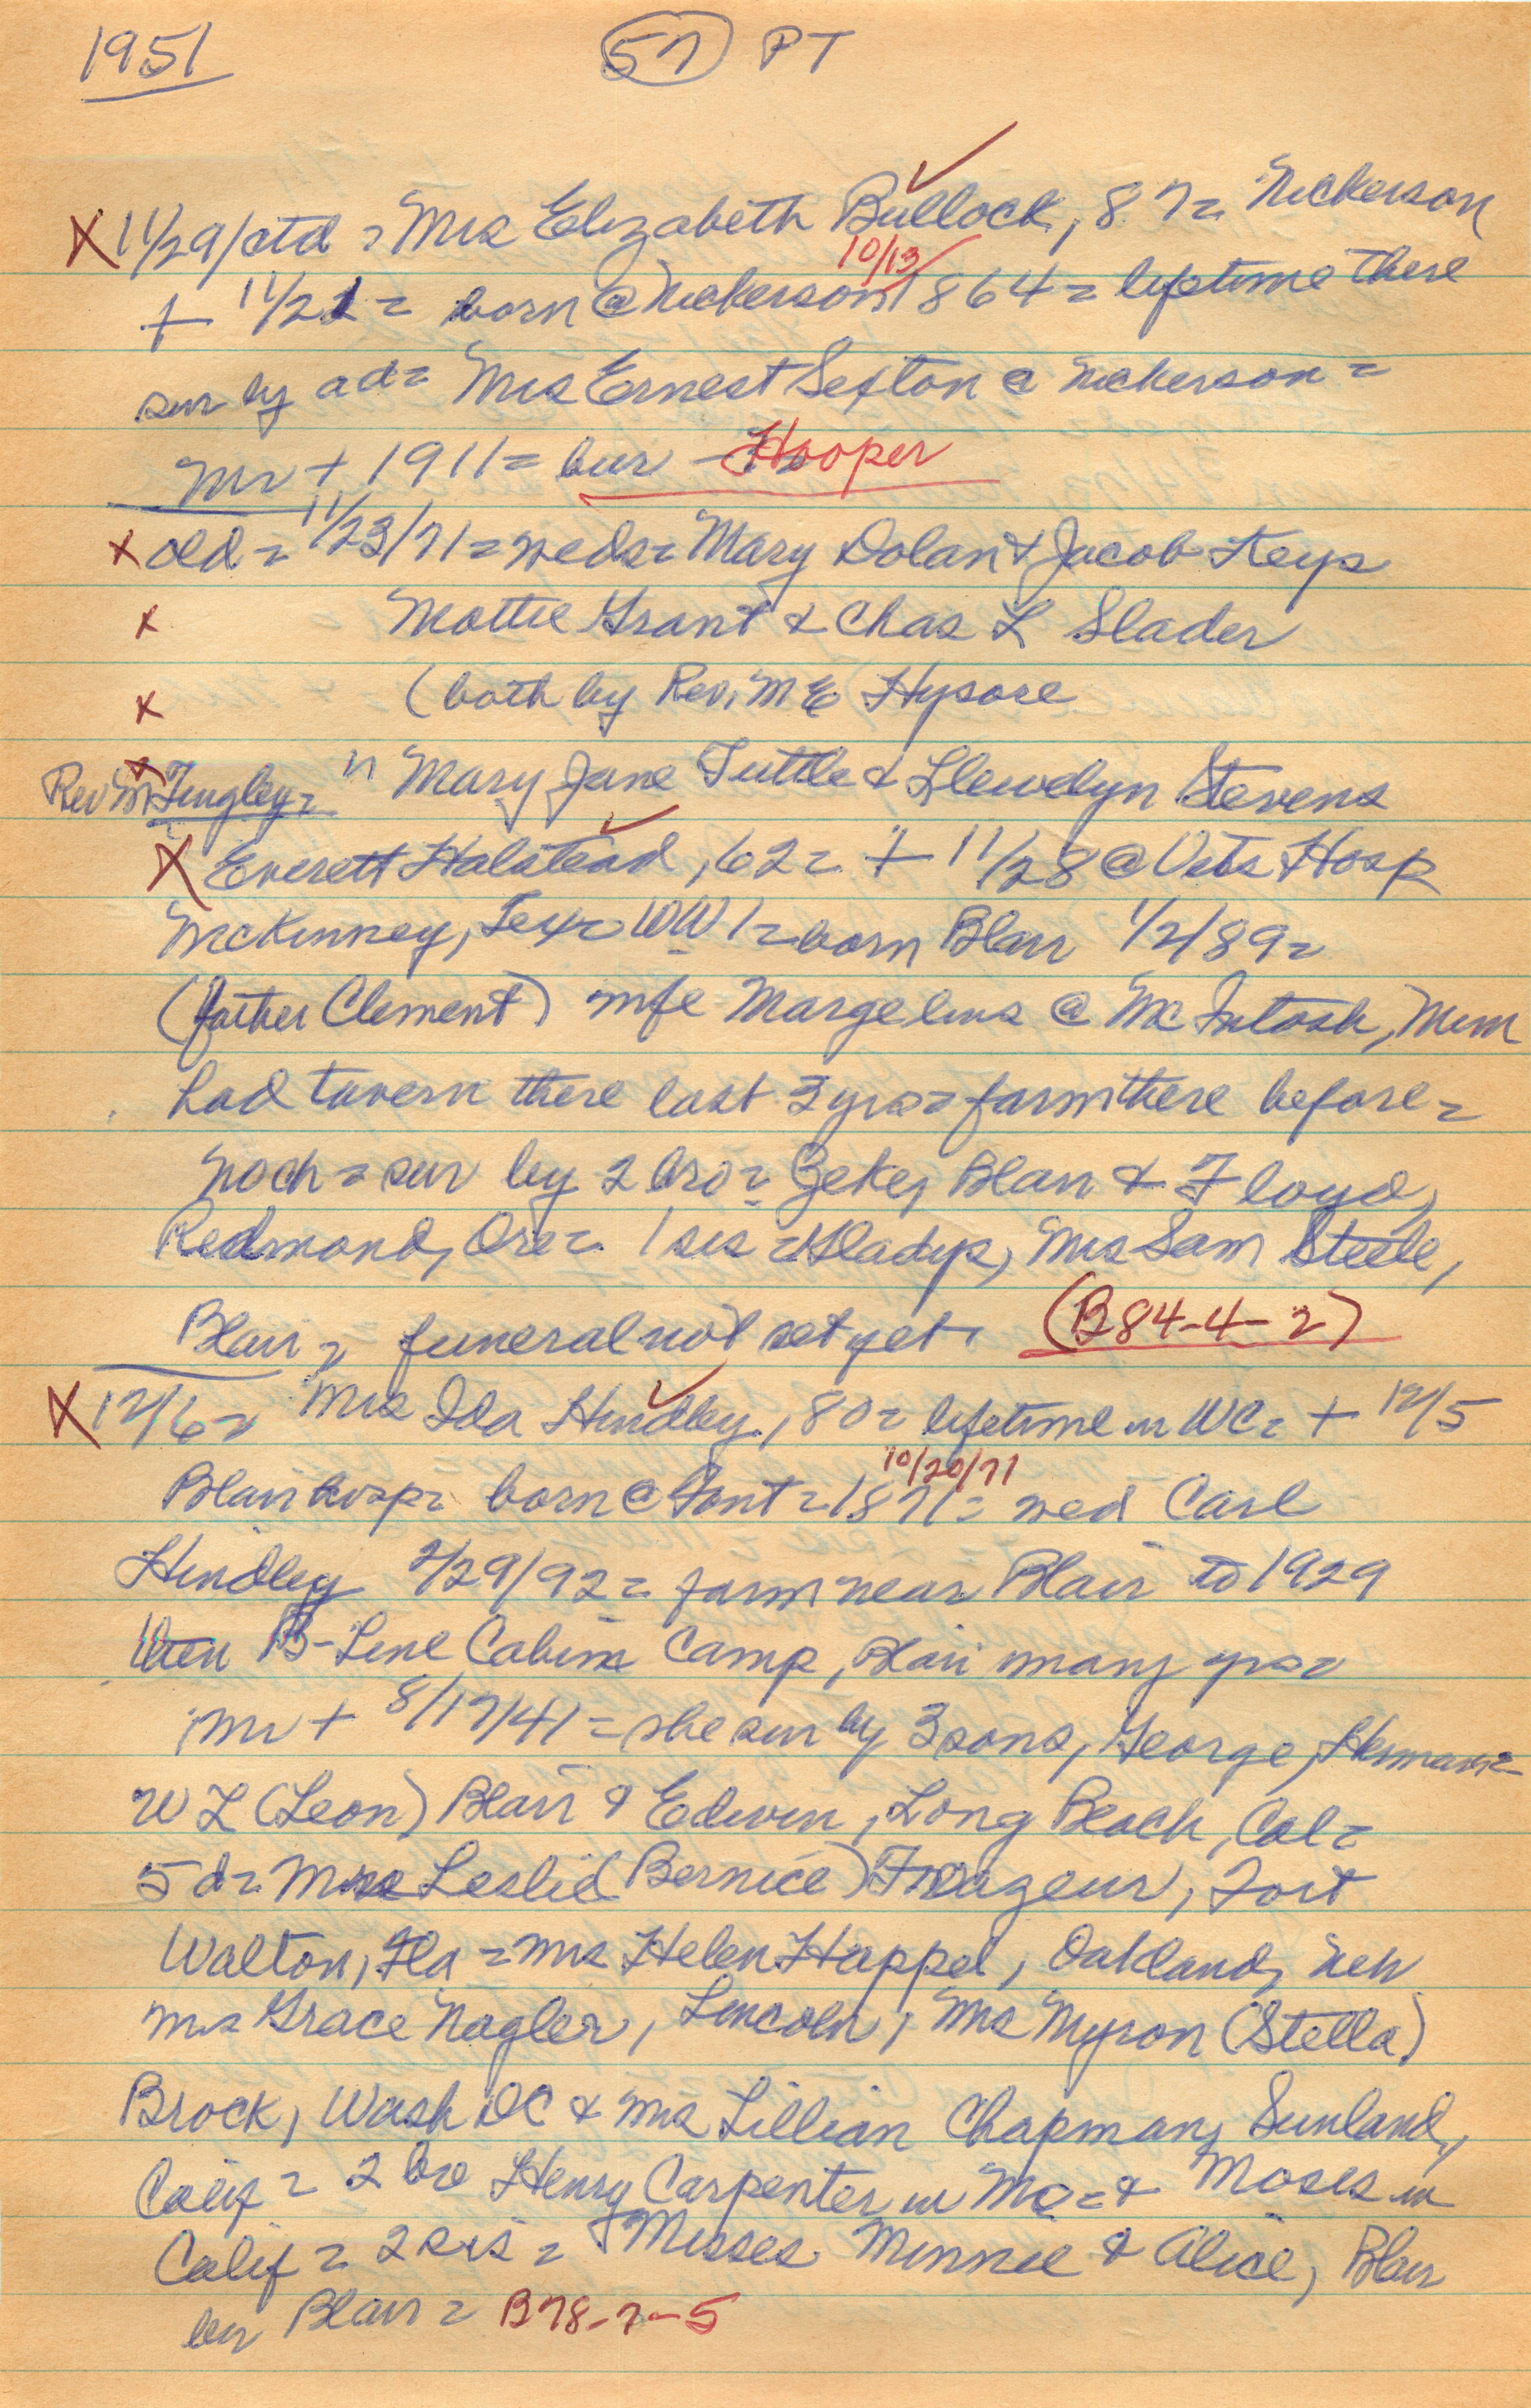 1951 57 PT
X 11/29/ctd = Mrs Elizabeth Bullock, 87 = Nickerson
10/13
+ 11/21 = born @ Nickerson 1864 = lifetime there
sur by ad = Mrs Ernest Sexton @ Nickerson =
Mr + 1911 = bur - Hooper
x old = 11/23/71 = weds = Mary Dolan & Jacob Keys
x Mattie Grant & Chas L Slader
x (both by Rev. M E Hysore
x " Mary Jane Tuttle & Llewelyn Stevens
Rev M Tingley =
X Everett Halstead, 62 = + 11/28 @ Vets Hosp
McKinney, Tex = WW 1 = born Blair 1/2/89 =
(father Clement) mfe Marge lives @ McIntosh, Minn
had tavern there last 3 yrs = farm there before =
noch = sur by 2 bro = Zeke, Blair & Floyd,
Redmond, Ore = 1 sis = Gladys, Mrs Sam Steele,
Blair = funeral not set yet. (B84-4-2)
X 12/6 = Mrs Ida Hindley, 80 = lifetime in WC = + 12/5
10/20/71
Blair hosp = born @ Font = 1871 = wed Carl
Hindley 2/29/92 = farm near Blair to 1929
then B-Line Cabin Camp, Blair many yrs =
mr + 8/17/41 = she sur by 3 sons, George, Herman =
W L (Leon) Blair & Edwin, Long Beach, Cal =
5 d = Mrs Leslie (Bernice) , Fort
Walton, Fla = Mrs Helen Happel, Oakland, Neb
Mrs Grace Nagler, Lincoln, Mrs Myron (Stella)
Brock, Wash DC & Mrs Lillian Chapman, Sunland,
Calif = 2 bro Henry Carpenter in Mo = & Moses in
Calif = 2 sis = Misses Minnie & Alice, Blair
bur Blair = B78-7-5